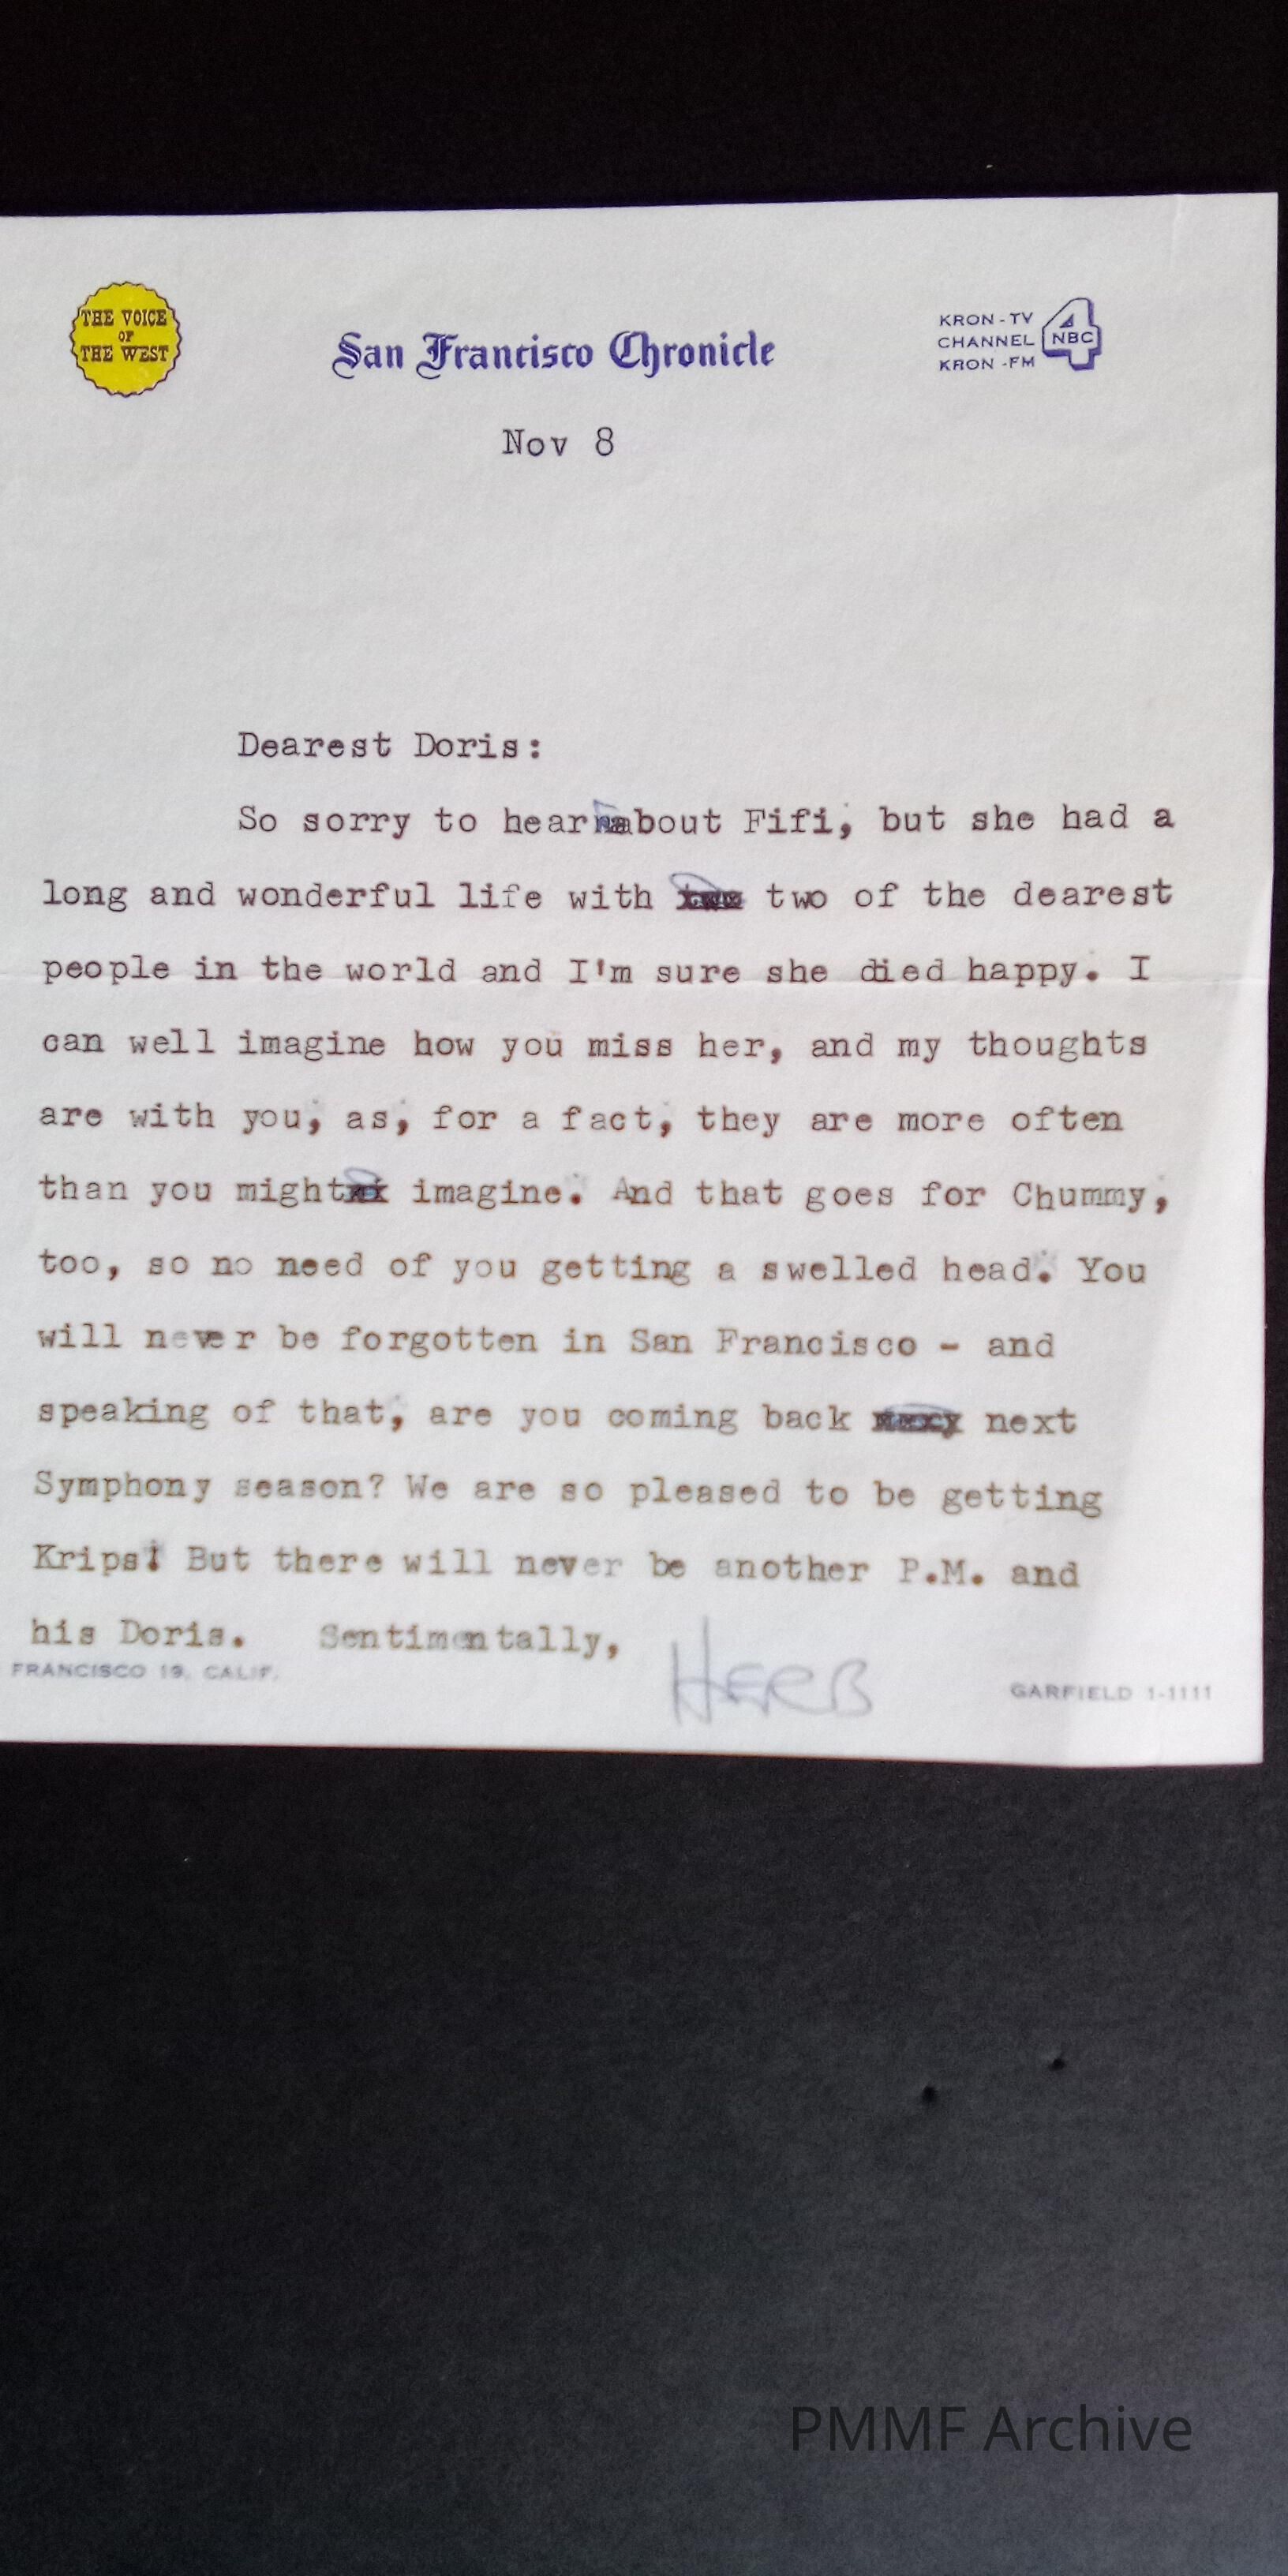 THE VOICE
OF
THE WEST
San Francisco Chronicle
KRON-TV
CHANNEL
KRON-FM
4
NBC
Nov 8
Dearest Doris:
So sorry to hear about Fifi, but she had a
long and wonderful life with two of the dearest
people in the world and I'm sure she died happy. I
can well imagine how you miss her, and my thoughts
are with you, as, for a fact, they are more often
than you might imagine. And that goes for Chummy,
too, so no need of you getting a swelled head. You
will never be forgotten in San Francisco - and
speaking of that, are you coming back next
Symphony season? We are so pleased to be getting
Krips! But there will never be another P.M. and
his Doris. Sentimentally,
HERB
FRANCISCO 19, CALIF.
GARFIELD 1-1111
PMMF Archive